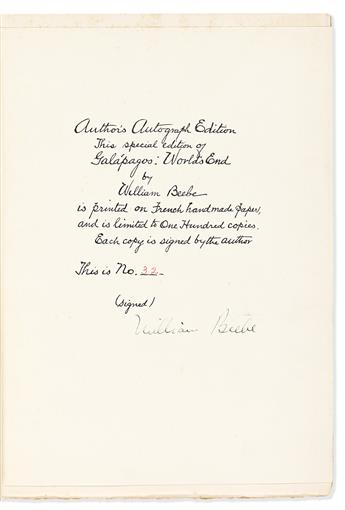 Author's Autograph Edition
This special edition of
Galápagos: World's End
by
William Beebe
is printed on French handmade paper,
and is limited to One Hundred copies.
Each copy is signed by the author
This is No. 32
(signed)
William Beebe